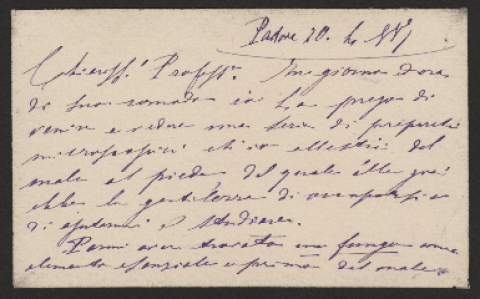 Padova 20. 
Chiariss.º Profess.e Un giorno d'ora
di Sua comodo io La prego di
venire a vedere una serie di preparati
microscopici ch'io allestii del
male al piede del quale Ella già
ebbe la gentilezza di occuparsi
di aiutarmi a studiare.
Parmi aver trovato un fungo come
elemento essenziale e primo del male